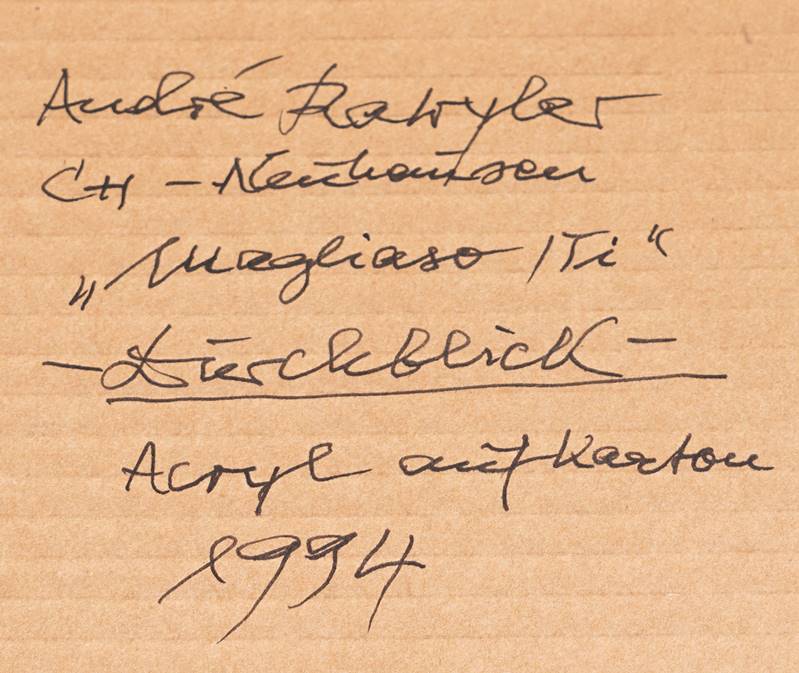 André Rawyler
CH - Neuhausen
„Magliaso / Ti“
- Durchblick -
Acryl auf Karton
1994